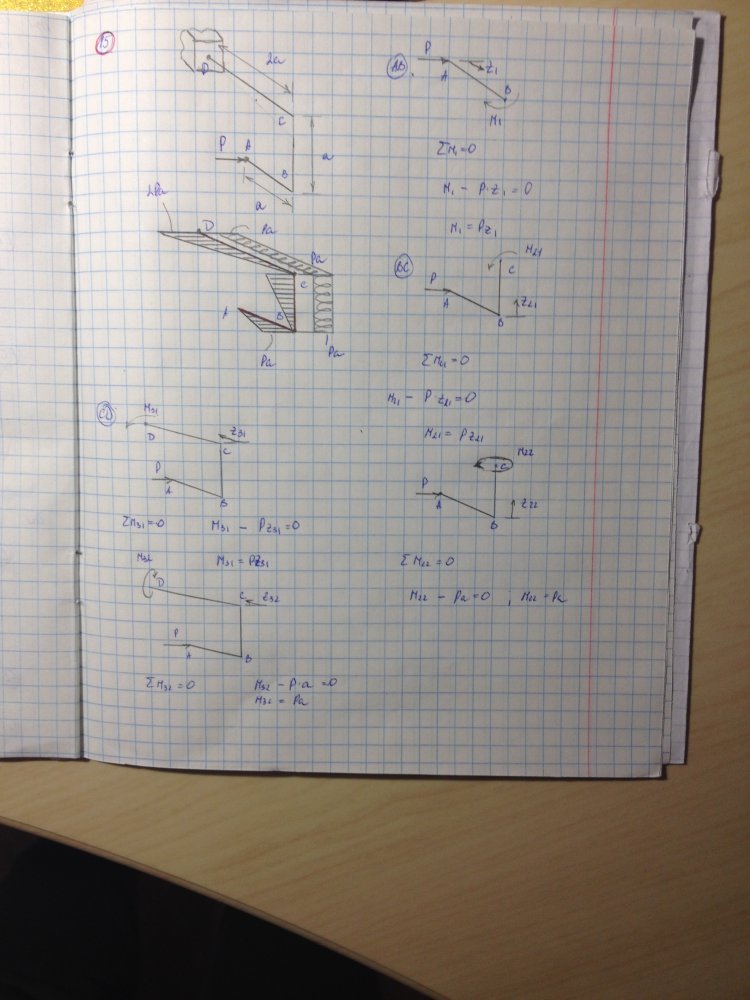 15
D
2a
C
a
P A
B
a
2Pa
D
Pa
Pa
C
A
B
Pa
Pa
AB
P
A
z₁
B
M₁
ΣM₁=0
M₁ - P·z₁ = 0
M₁ = Pz₁
BC
M₂₁
C
P
A
B
z₂₁
ΣM₂₁=0
M₂₁ - P·z₂₁=0
M₂₁ = Pz₂₁
M₂₂
C
P
A
B
z₂₂
ΣM₂₂=0
M₂₂ - Pa=0 ; M₂₂ = Pa
CD
M₃₁
D
z₃₁
C
P
A
B
ΣM₃₁=0 M₃₁ - Pz₃₁=0
M₃₁ = Pz₃₁
M₃₂
D
C
z₃₂
P
A
B
ΣM₃₂=0 M₃₂ - P·a =0
M₃₂ = Pa